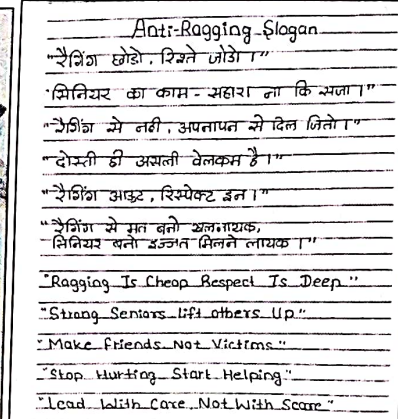 Anti-Ragging Slogan
"रैगिंग छोडो, रिश्ते जोडो।"
"सिनियर का काम - सहारा ना कि सजा।"
"रैगिंग से नही, अपनापन से दिल जितो।"
"दोस्ती ही असली वेलकम है।"
"रैगिंग आऊट, रिस्पेक्ट इन।"
"रैगिंग से मत बनो खलनायक,
सिनियर बनो इज्जत मिलने लायक।"
"Ragging Is Cheap Respect Is Deep"
"Strong Seniors lift others Up"
"Make friends Not Victims"
"Stop Hurting Start Helping"
"Lead With Care Not With Scare"